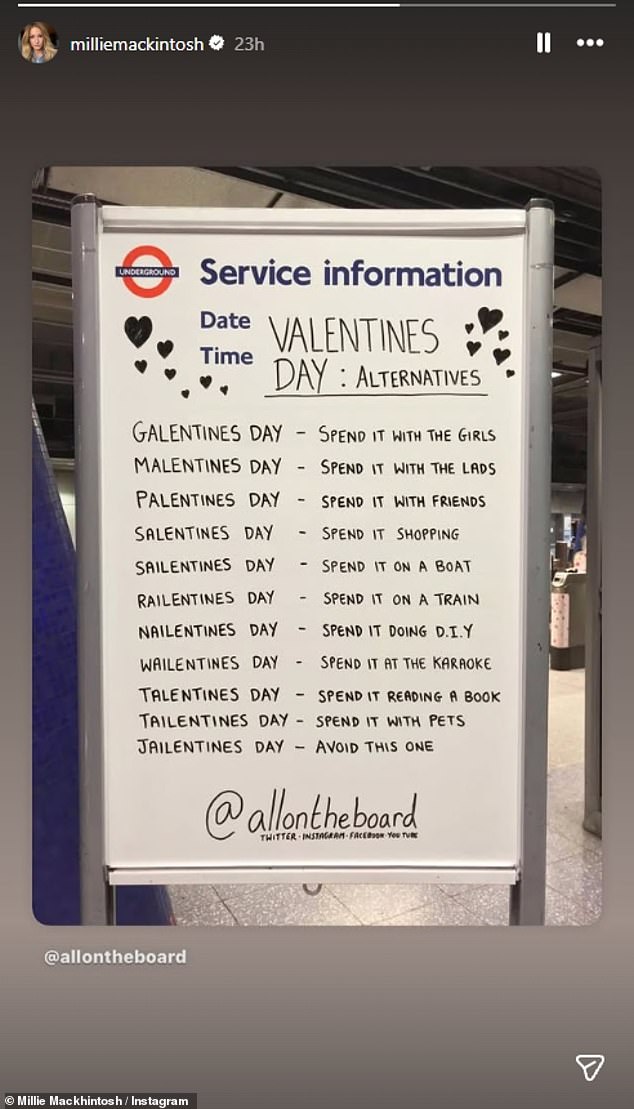 milliemackintosh 23h
UNDERGROUND
Service information
Date
Time
VALENTINES
DAY : ALTERNATIVES
GALENTINES DAY - SPEND IT WITH THE GIRLS
MALENTINES DAY - SPEND IT WITH THE LADS
PALENTINES DAY - SPEND IT WITH FRIENDS
SALENTINES DAY - SPEND IT SHOPPING
SAILENTINES DAY - SPEND IT ON A BOAT
RAILENTINES DAY - SPEND IT ON A TRAIN
NAILENTINES DAY - SPEND IT DOING D.I.Y
WAILENTINES DAY - SPEND IT AT THE KARAOKE
TALENTINES DAY - SPEND IT READING A BOOK
TAILENTINES DAY - SPEND IT WITH PETS
JAILENTINES DAY - AVOID THIS ONE
@allontheboard
TWITTER · INSTAGRAM · FACEBOOK · YOUTUBE
@allontheboard
© Millie Mackhintosh / Instagram